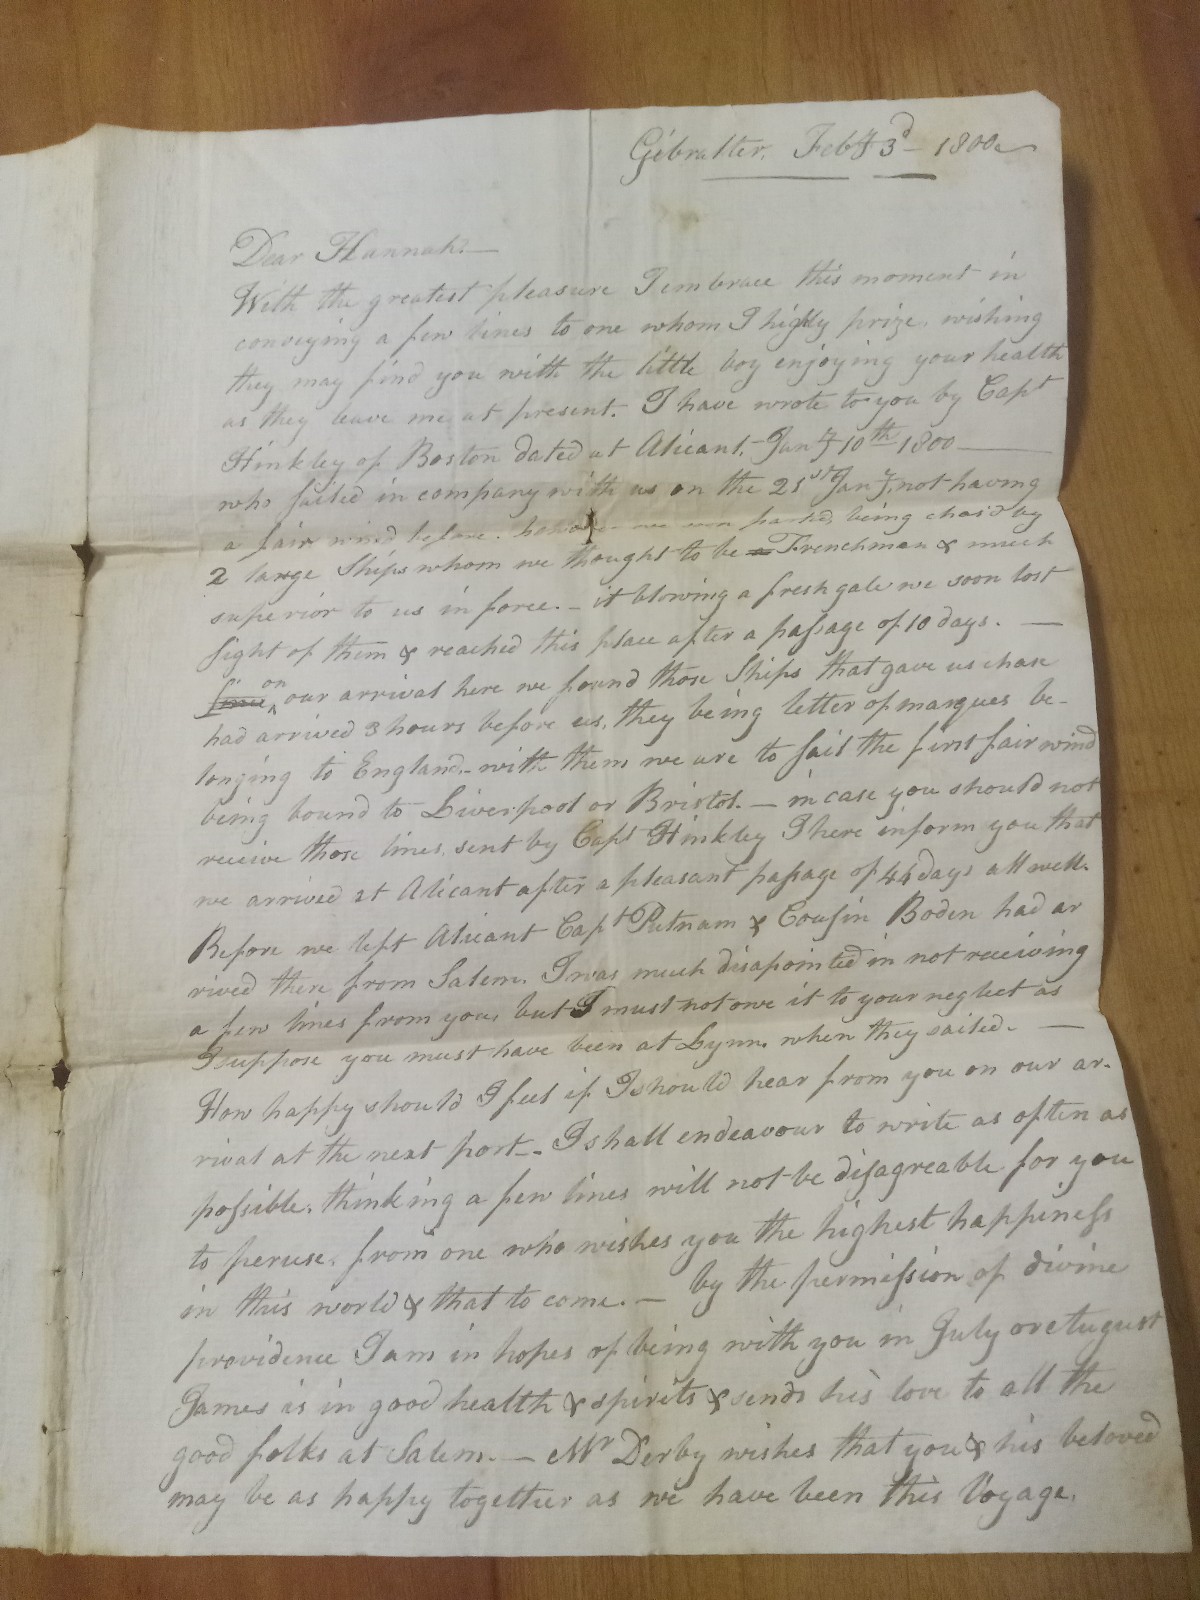 Gibralter. Feby 3d - 1800
Dear Hannah. —
With the greatest pleasure I embrace this moment in
conveying a few lines to one whom I highly prize, wishing
they may find you with the little boy enjoying your health
as they leave me at present. I have wrote to you by Capt
Hinkley of Boston dated at Alicant, Jany 10th 1800 —
who sailed in company with us on the 25st Jany, not having
a fair wind before. being chas'd by
2 large Ships whom we thought to be a Frenchman & much
superior to us in force. - it blowing a fresh gale we soon lost
sight of them & reached this place after a passage of 10 days. —
on our arrival here we found those Ships that gave us chase
had arrived 3 hours before us, they being letter of marques be-
longing to England - with them we are to sail the first fair wind
being bound to Liverpool or Bristol. — in case you should not
receive those lines sent by Capt Hinkley I here inform you that
we arrived at Alicant after a pleasant passage of 44 days all well.
Before we left Alicant Capt Putnam & Cousin Boden had ar
rived there from Salem. I was much disapointed in not receiving
a few lines from you, but I must not owe it to your neglect as
I suppose you must have been at Lynn, when they sailed. —
How happy should I feel if I should hear from you on our ar-
rival at the next port -. I shall endeavour to write as often as
possible, thinking a few lines will not be disagreable for you
to peruse, from one who wishes you the highest happiness
in this world & that to come. — by the permission of divine
providence I am in hopes of being with you in July or August
James is in good health & spirits & sends his love to all the
good folks at Salem. — Mr Derby wishes that you & his beloved
may be as happy together as we have been this Voyage.